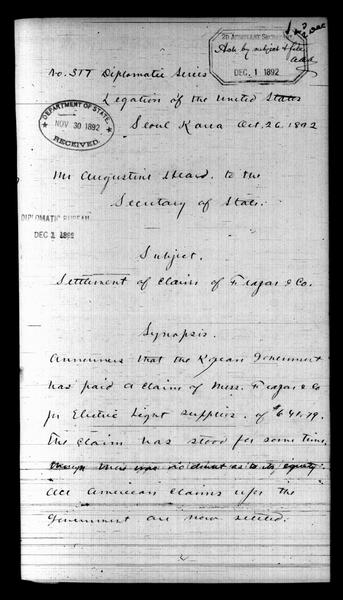 2D ASSISTANT SECRETARY
Ack by subject & file
DEC 1 1892
No. 377 Diplomatic Series
Legation of the United States
Seoul Korea Oct. 26. 1892
DEPARTMENT OF STATE.
NOV 30 1892
RECEIVED.
Mr Augustine Heard. to the
Secretary of State.
DIPLOMATIC BUREAU
DEC 2 1892
Subject.
Settlement of claims of Frazar & Co.
Synopsis.
Announces that the Korean Government
has paid a claim of Mess. Frazar & Co
for Electric Light supplies. of $641.79.
The claim has stood for some time.
though there was no doubt as to its equity.
All American claims upon the
Government are now settled.